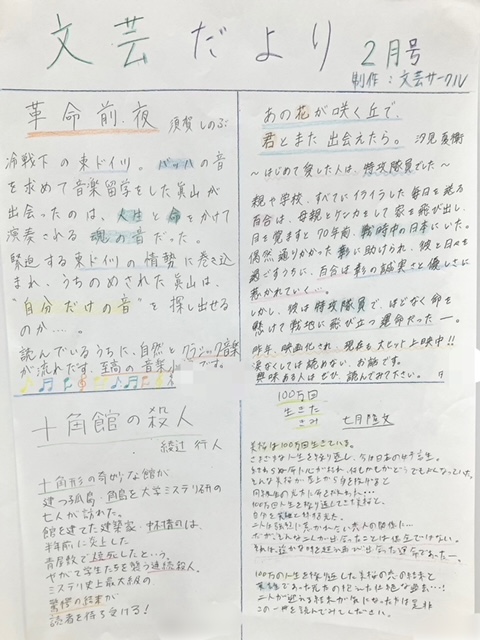 文芸だより 2月号
制作：文芸サークル
革命前夜 須賀しのぶ
冷戦下の東ドイツ。バッハの音
を求めて音楽留学をした眞山が
出会ったのは、人生と命をかけて
演奏される魂の音だった。
緊迫する東ドイツの情勢に巻き込
まれ、うちのめされた眞山は、
"自分だけの音"を探し出せる
のか…。
読んでいるうちに、自然とクラシック音楽
が流れだす、至高の音楽 です。
あの花が咲く丘で、
君とまた出会えたら。 汐見夏衛
〜はじめて愛した人は、特攻隊員でした〜
親や学校、すべてにイライラした毎日を送る
百合は、母親とケンカをして家を飛び出し、
目を覚ますと70年前、戦時中の日本にいた。
偶然通りかかった彰に助けられ、彼と日々を
過ごすうちに、百合は彰の誠実さと優しさに
惹かれていく…。
しかし、彼は特攻隊員で、ほどなく命を
懸けて戦地に飛び立つ運命だった―。
昨年、映画化され、現在も大ヒット上映中!!
涙なくしては読めない、お話です。
興味ある人はぜひ、読んでみて下さい。
十角館の殺人
綾辻行人
十角形の奇妙な館が
建つ孤島・角島を大学ミステリ研の
七人が訪れた。
館を建てた建築家・中村青司は、
半年前に炎上した
青屋敷で焼死したという。
やがて学生たちを襲う連続殺人。
ミステリ史上最大級の
驚愕の結末が
読者を待ち受ける！
100万回
生きた
きみ 七月隆文
美桜は100万回生きている。
さまざまな人生を繰り返し、今は日本の女子高生。
100万回人生をくり返してきた美桜と、
100万の人生を繰り返した美桜の恋の結末と
二人が迎える結末が気になった方は是非
この一冊を読んでみてください。